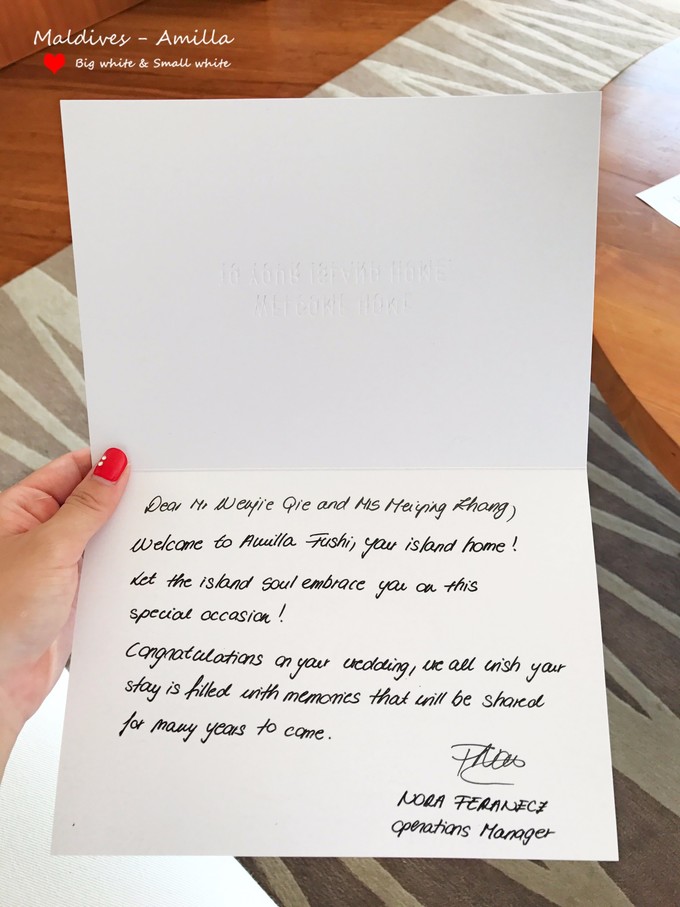 Maldives - Amilla
Big white & Small white
Dear Mr Wenjie Qie and MS Meiying Zhang,
Welcome to Amilla Fushi, your island home!
Let the island soul embrace you on this
special occasion!
Congratulations on your wedding, we all wish your
stay is filled with memories that will be shared
for many years to come.
NORA FERANECZ
Operations Manager